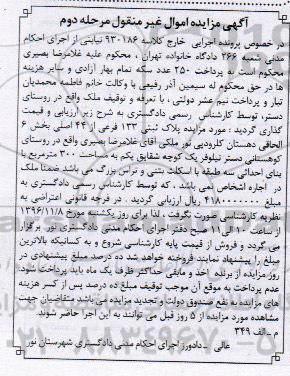 آگهی مزایده اموال غیر منقول مرحله دوم
در خصوص پرونده اجرایی خارج کلاسه ۹۳۰۱۸۶ نیابتی از اجرای احکام
مدنی شعبه ۲۶۶ دادگاه خانواده تهران ، محکوم علیه غلامرضا بصیری
محکوم است به پرداخت ۲۵۰ عدد سکه تمام بهار آزادی و سایر هزینه
ها در حق محکوم له سیمین آذر رفیعی با وکالت خانم فاطمه محمدیان
تبار و پرداخت نیم عشر دولتی ، با تعرفه و توقیف ملک واقع در روستای
دستر، توسط کارشناس رسمی دادگستری به شرح زیر ارزیابی و قیمت
گذاری گردید : مورد مزایده پلاک ثبتی ۱۳۳ فرعی از ۴۴ اصلی بخش ۶
الحاقی دهستان کلرودپی نور ملکی آقای غلامرضا بصیری واقع در روستای
کوهستانی دستر نیلوفر یک کوچه شقایق یکم به مساحت ۳۰۰ مترمربع با
بنای احداثی سه طبقه با اسکلت بتنی و تراس بزرگ می باشد ضمنا ملک
در اجاره اشخاص نمی باشد ، که توسط کارشناس رسمی دادگستری به
مبلغ ۴۱۸۰۰۰۰۰۰۰ ریال ارزیابی گردید . در فرجه قانونی اعتراضی به
نظریه کارشناسی صورت نگرفت ، لذا برای روز یکشنبه مورخ ۱۳۹۶/۱۱/۸
از ساعت ۱۰ الی ۱۱ صبح دفتر اجرای احکام مدنی دادگستری نور برگزار
می گردد و فروش از قیمت پایه کارشناسی شروع و به کسانیکه بالاترین
مبلغ را پیشنهاد نمایند فروخته خواهد شد ده درصد مبلغ پیشنهادی در
روز مزایده از برنده اخذ و مابقی حداکثر ظرف یک ماه باید پرداخت شود.
عدم پرداخت به موقع آن موجب توقیف مبلغ ده درصد پس از کسر هزینه
های مزایده به نفع صندوق دولت و تجدید مزایده می باشد متقاضیان جهت
مشاهده مورد مزایده از ۵ روز قبل می توانند به این اجرا حاضر شوند.
م -الف ۳۴۹
عالی -دادورز اجرای احکام مدنی دادگستری شهرستان نور